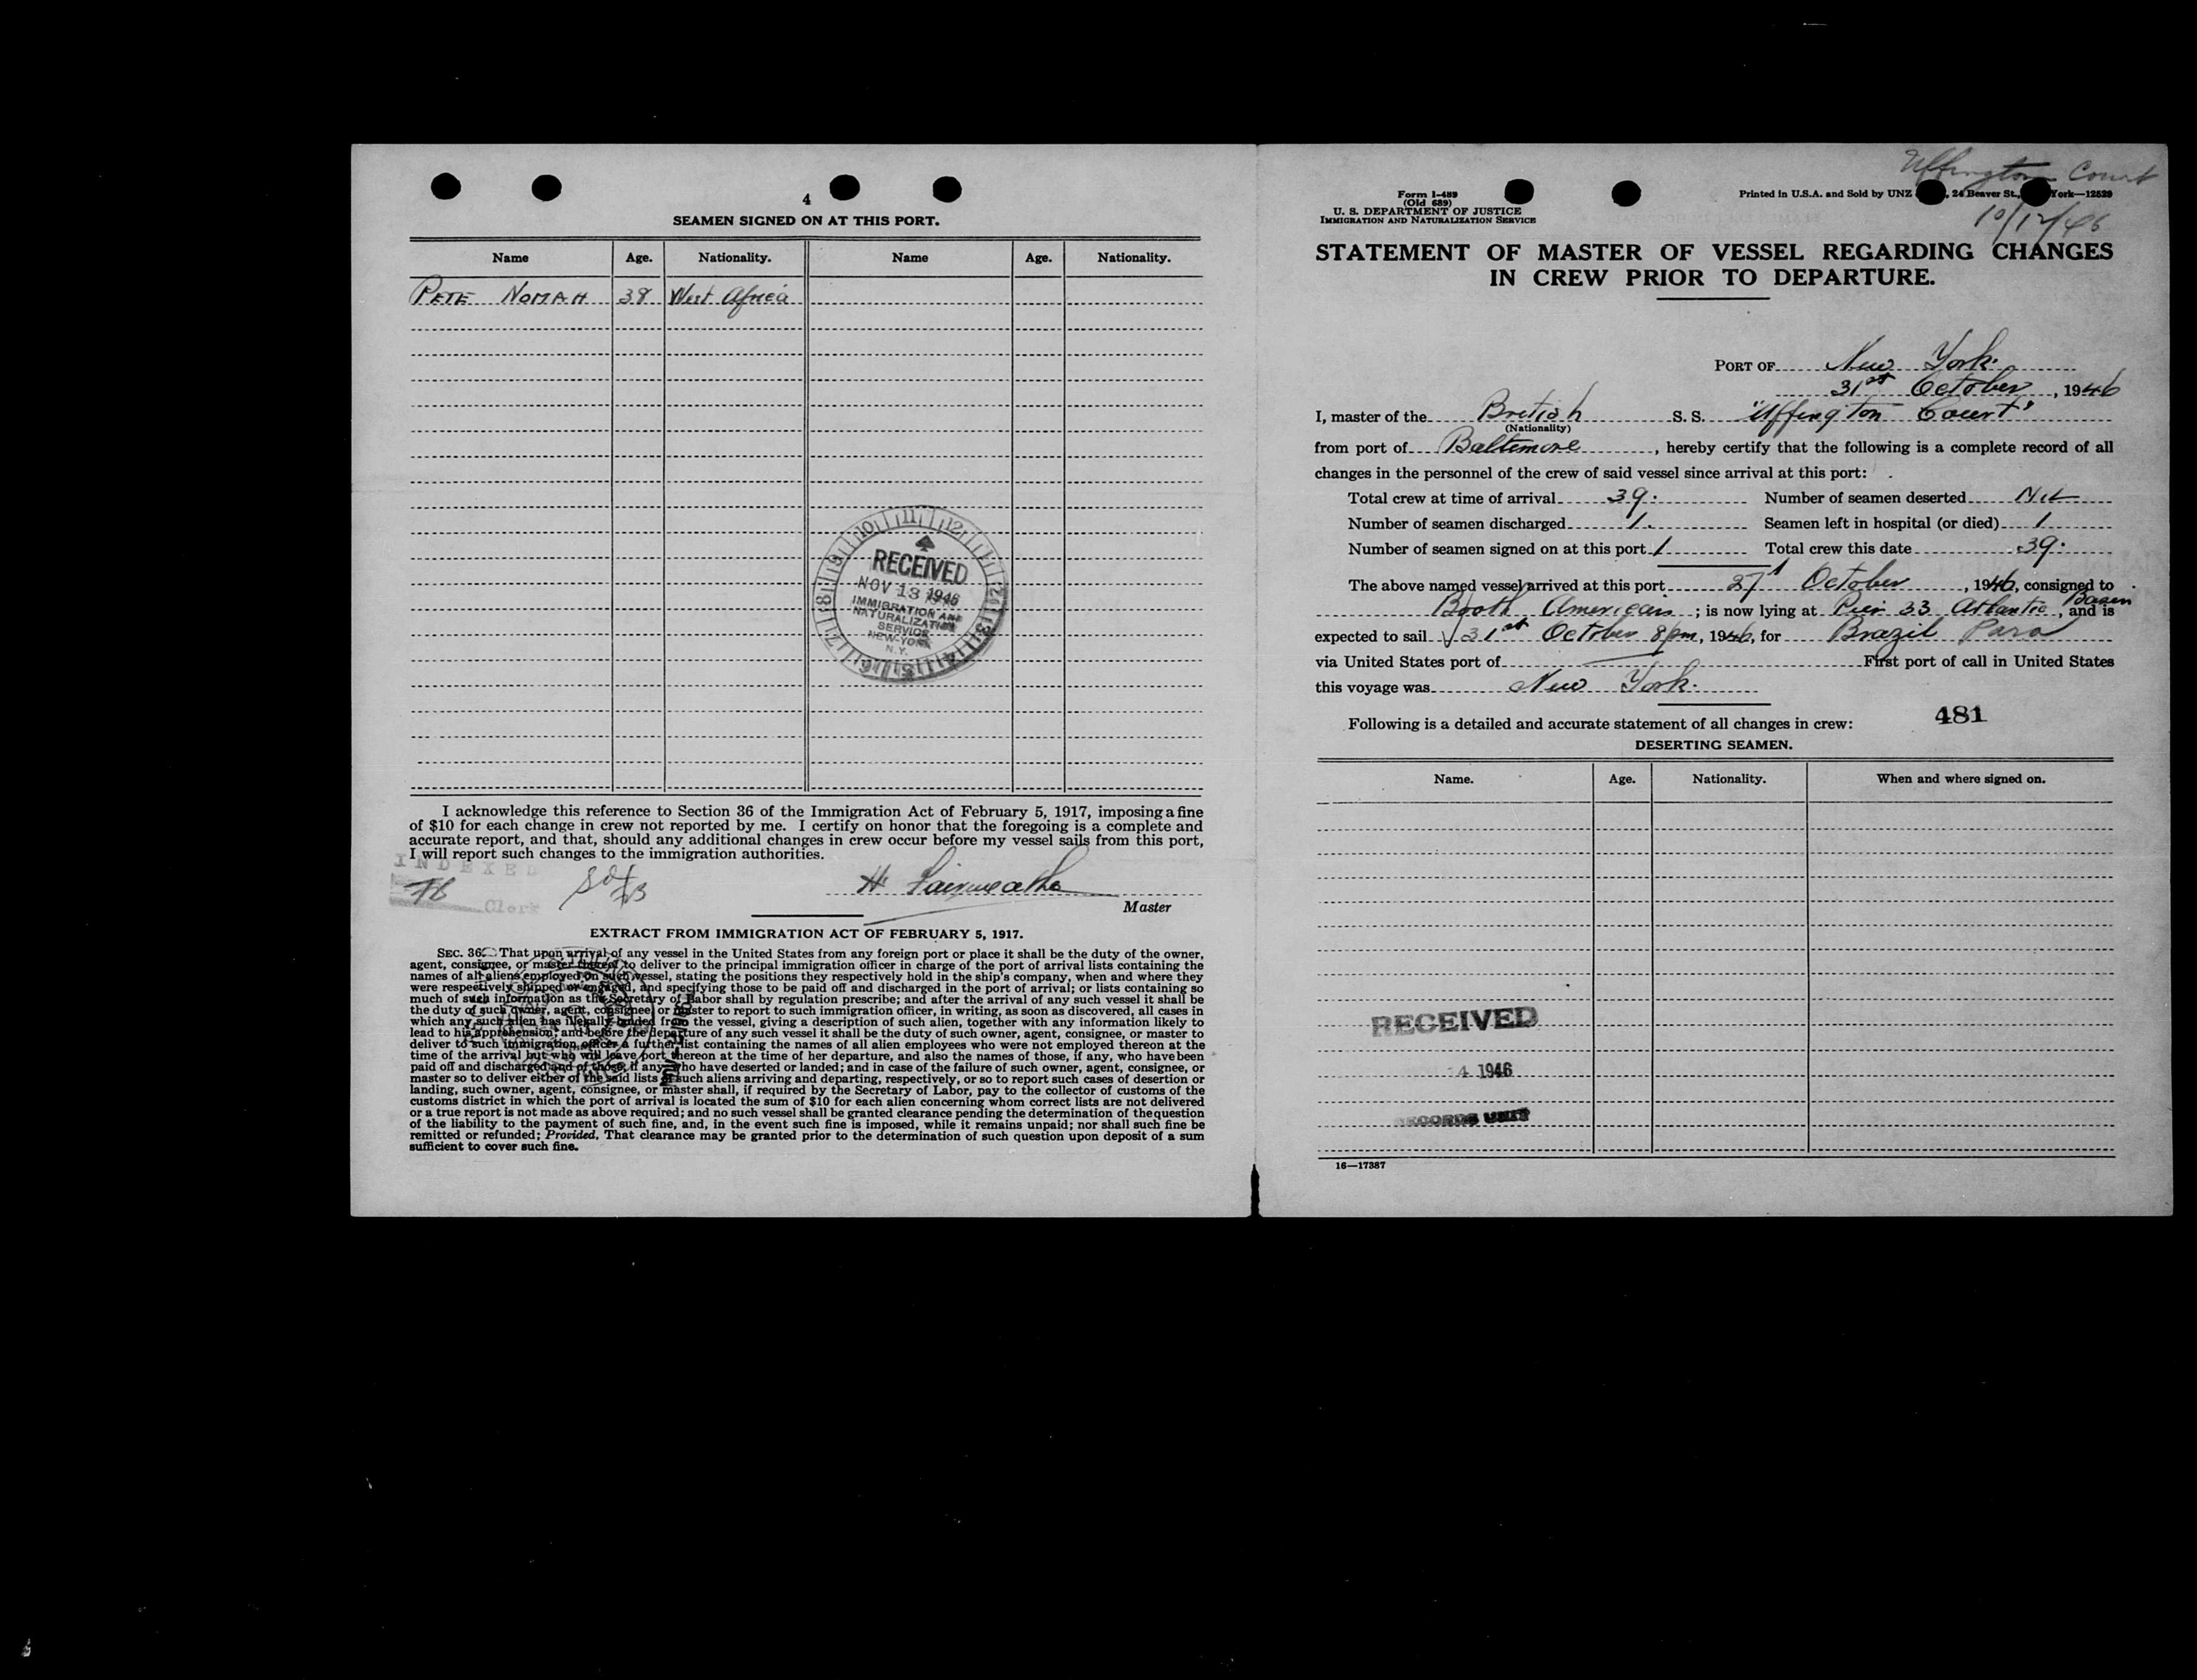 4
SEAMEN SIGNED ON AT THIS PORT.
Name Age. Nationality. Name Age. Nationality.
PETE NOMAH 38 West Africa
RECEIVED
NOV 13 1946
IMMIGRATION AND
NATURALIZATION
SERVICE
NEW-YORK
N.Y.
I acknowledge this reference to Section 36 of the Immigration Act of February 5, 1917, imposing a fine
of $10 for each change in crew not reported by me. I certify on honor that the foregoing is a complete and
accurate report, and that, should any additional changes in crew occur before my vessel sails from this port,
I will report such changes to the immigration authorities.
INDEXED
Clerk
H Fairweather
Master
EXTRACT FROM IMMIGRATION ACT OF FEBRUARY 5, 1917.
SEC. 36. That upon arrival of any vessel in the United States from any foreign port or place it shall be the duty of the owner,
agent, consignee, or master thereof to deliver to the principal immigration officer in charge of the port of arrival lists containing the
names of all aliens employed on such vessel, stating the positions they respectively hold in the ship's company, when and where they
were respectively shipped or engaged, and specifying those to be paid off and discharged in the port of arrival; or lists containing so
much of such information as the Secretary of Labor shall by regulation prescribe; and after the arrival of any such vessel it shall be
the duty of such owner, agent, consignee, or master to report to such immigration officer, in writing, as soon as discovered, all cases in
which any such alien has illegally landed from the vessel, giving a description of such alien, together with any information likely to
lead to his apprehension; and before the departure of any such vessel it shall be the duty of such owner, agent, consignee, or master to
deliver to such immigration officer a further list containing the names of all alien employees who were not employed thereon at the
time of the arrival but who will leave port thereon at the time of her departure, and also the names of those, if any, who have been
paid off and discharged and of those, if any, who have deserted or landed; and in case of the failure of such owner, agent, consignee, or
master so to deliver either of the said lists of such aliens arriving and departing, respectively, or so to report such cases of desertion or
landing, such owner, agent, consignee, or master shall, if required by the Secretary of Labor, pay to the collector of customs of the
customs district in which the port of arrival is located the sum of $10 for each alien concerning whom correct lists are not delivered
or a true report is not made as above required; and no such vessel shall be granted clearance pending the determination of the question
of the liability to the payment of such fine, and, in the event such fine is imposed, while it remains unpaid; nor shall such fine be
remitted or refunded; Provided, That clearance may be granted prior to the determination of such question upon deposit of a sum
sufficient to cover such fine.
Uffington Court
10/12/46
Form I-489
(Old 689)
U. S. DEPARTMENT OF JUSTICE
IMMIGRATION AND NATURALIZATION SERVICE
Printed in U.S.A. and Sold by UNZ , 24 Beaver St., York—12529
STATEMENT OF MASTER OF VESSEL REGARDING CHANGES
IN CREW PRIOR TO DEPARTURE.
PORT OF New York.
31st October, 1946
I, master of the British S. S. "Uffington Court"
(Nationality)
from port of Baltimore, hereby certify that the following is a complete record of all
changes in the personnel of the crew of said vessel since arrival at this port:
Total crew at time of arrival 39. Number of seamen deserted Nil
Number of seamen discharged 1. Seamen left in hospital (or died) 1
Number of seamen signed on at this port 1 Total crew this date 39.
The above named vessel arrived at this port 27 October, 1946, consigned to
Booth American; is now lying at Pier 33 Atlantic Basin, and is
expected to sail 31st October 8pm, 1946, for Brazil Para
via United States port of First port of call in United States
this voyage was New York.
Following is a detailed and accurate statement of all changes in crew:
481
DESERTING SEAMEN.
Name. Age. Nationality. When and where signed on.
RECEIVED
4 1946
RECORDS UNIT
16—17387